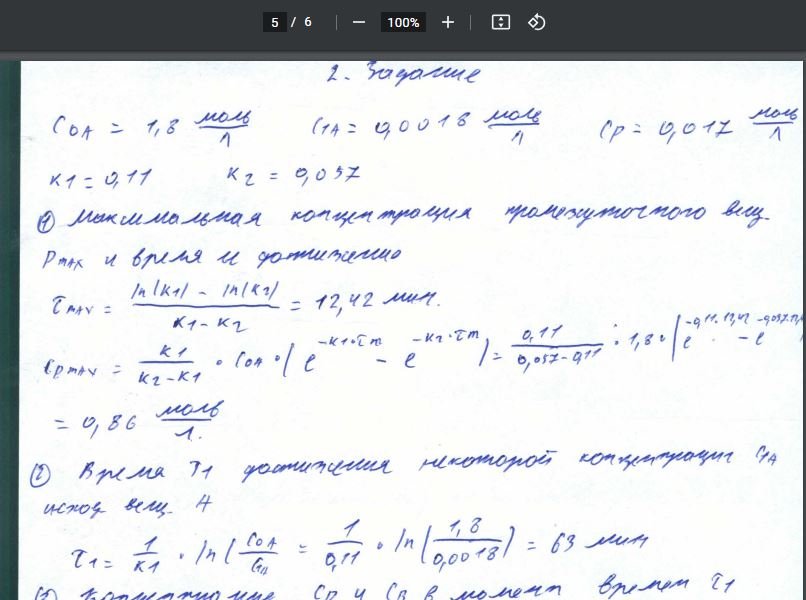 5 / 6 100%
2. Задание
C0A = 1,8 моль/л C1A = 0,0018 моль/л Cp = 0,017 моль/л
K1 = 0,11 K2 = 0,057
① Максимальная концентрация промежуточного вещ.
Pmax и время и достижению
τmax = ln(K1) - ln(K2) / K1 - K2 = 12,42 мин.
Cpmax = K1 / K2-K1 · C0A · (e^-K1·τm - e^-K2·τm) = 0,11 / 0,057-0,11 · 1,8 · (e^-0,11·12,42 - e^-0,057·
= 0,86 моль/л.
② Время τ1 достижения некоторой концентрации C1A
исход вещ. A
τ1 = 1/K1 · ln(C0A/C1A = 1/0,11 · ln(1,8/0,0018) = 63 мин
Cp и CB в момент времен τ1